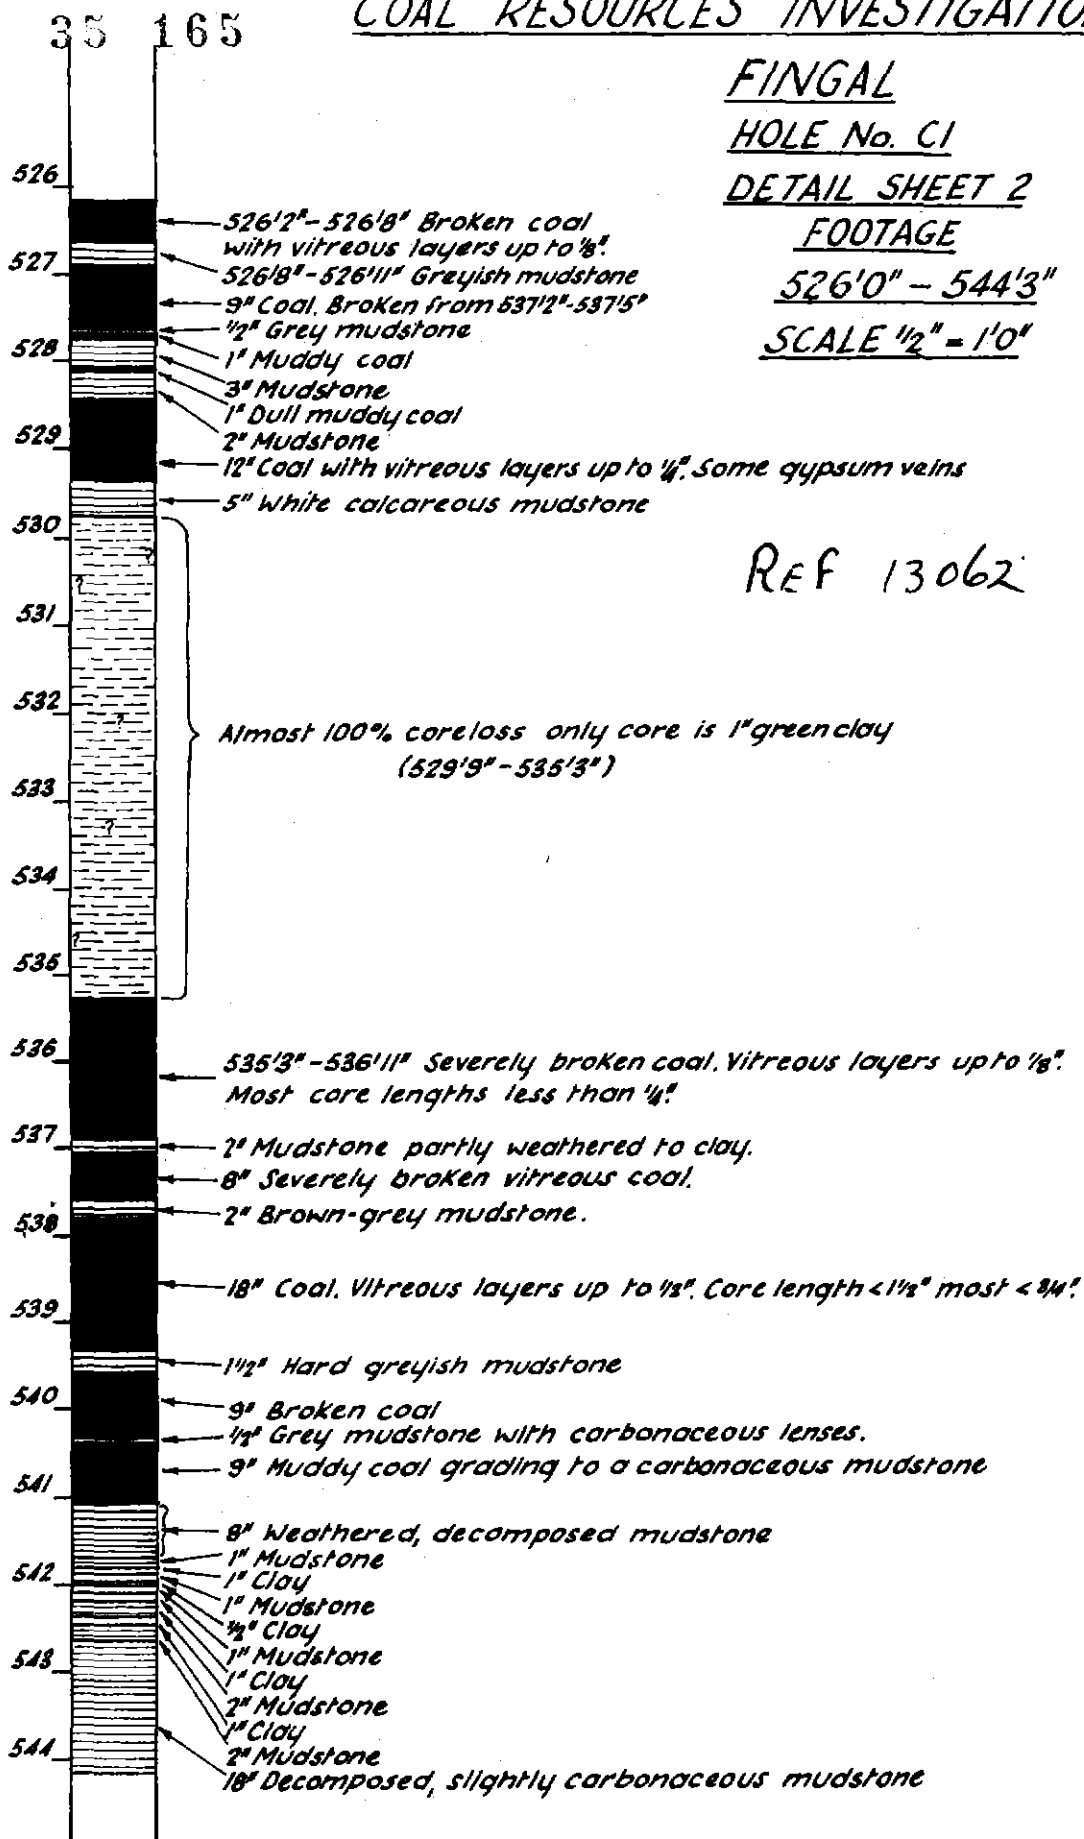 35 165
COAL RESOURCES INVESTIGATION
FINGAL
HOLE No. C1
DETAIL SHEET 2
FOOTAGE
526'0" - 544'3"
SCALE 1/2" = 1'0"
REF 13062
526
526'2" - 526'8" Broken coal
with vitreous layers up to 1/8".
527
526'8" - 526'11" Greyish mudstone
9" Coal. Broken from 537'2"-537'5"
1/2" Grey mudstone
528
1" Muddy coal
3" Mudstone
1" Dull muddy coal
529
2" Mudstone
12" Coal with vitreous layers up to 1/4". Some gypsum veins
5" White calcareous mudstone
530
?
?
531
532
?
Almost 100% core loss only core is 1" green clay
(529'9" - 535'3")
533
?
534
?
535
536
535'3" - 536'11" Severely broken coal. Vitreous layers up to 1/8".
Most core lengths less than 1/4".
537
2" Mudstone partly weathered to clay.
8" Severely broken vitreous coal.
2" Brown-grey mudstone.
538
18" Coal. Vitreous layers up to 1/2". Core length < 1 1/2" most < 3/4".
539
1 1/2" Hard greyish mudstone
540
9" Broken coal
1/2" Grey mudstone with carbonaceous lenses.
9" Muddy coal grading to a carbonaceous mudstone
541
8" Weathered, decomposed mudstone
1" Mudstone
542
1" Clay
1" Mudstone
1/2" Clay
1" Mudstone
543
1" Clay
2" Mudstone
1" Clay
544
2" Mudstone
18" Decomposed, slightly carbonaceous mudstone